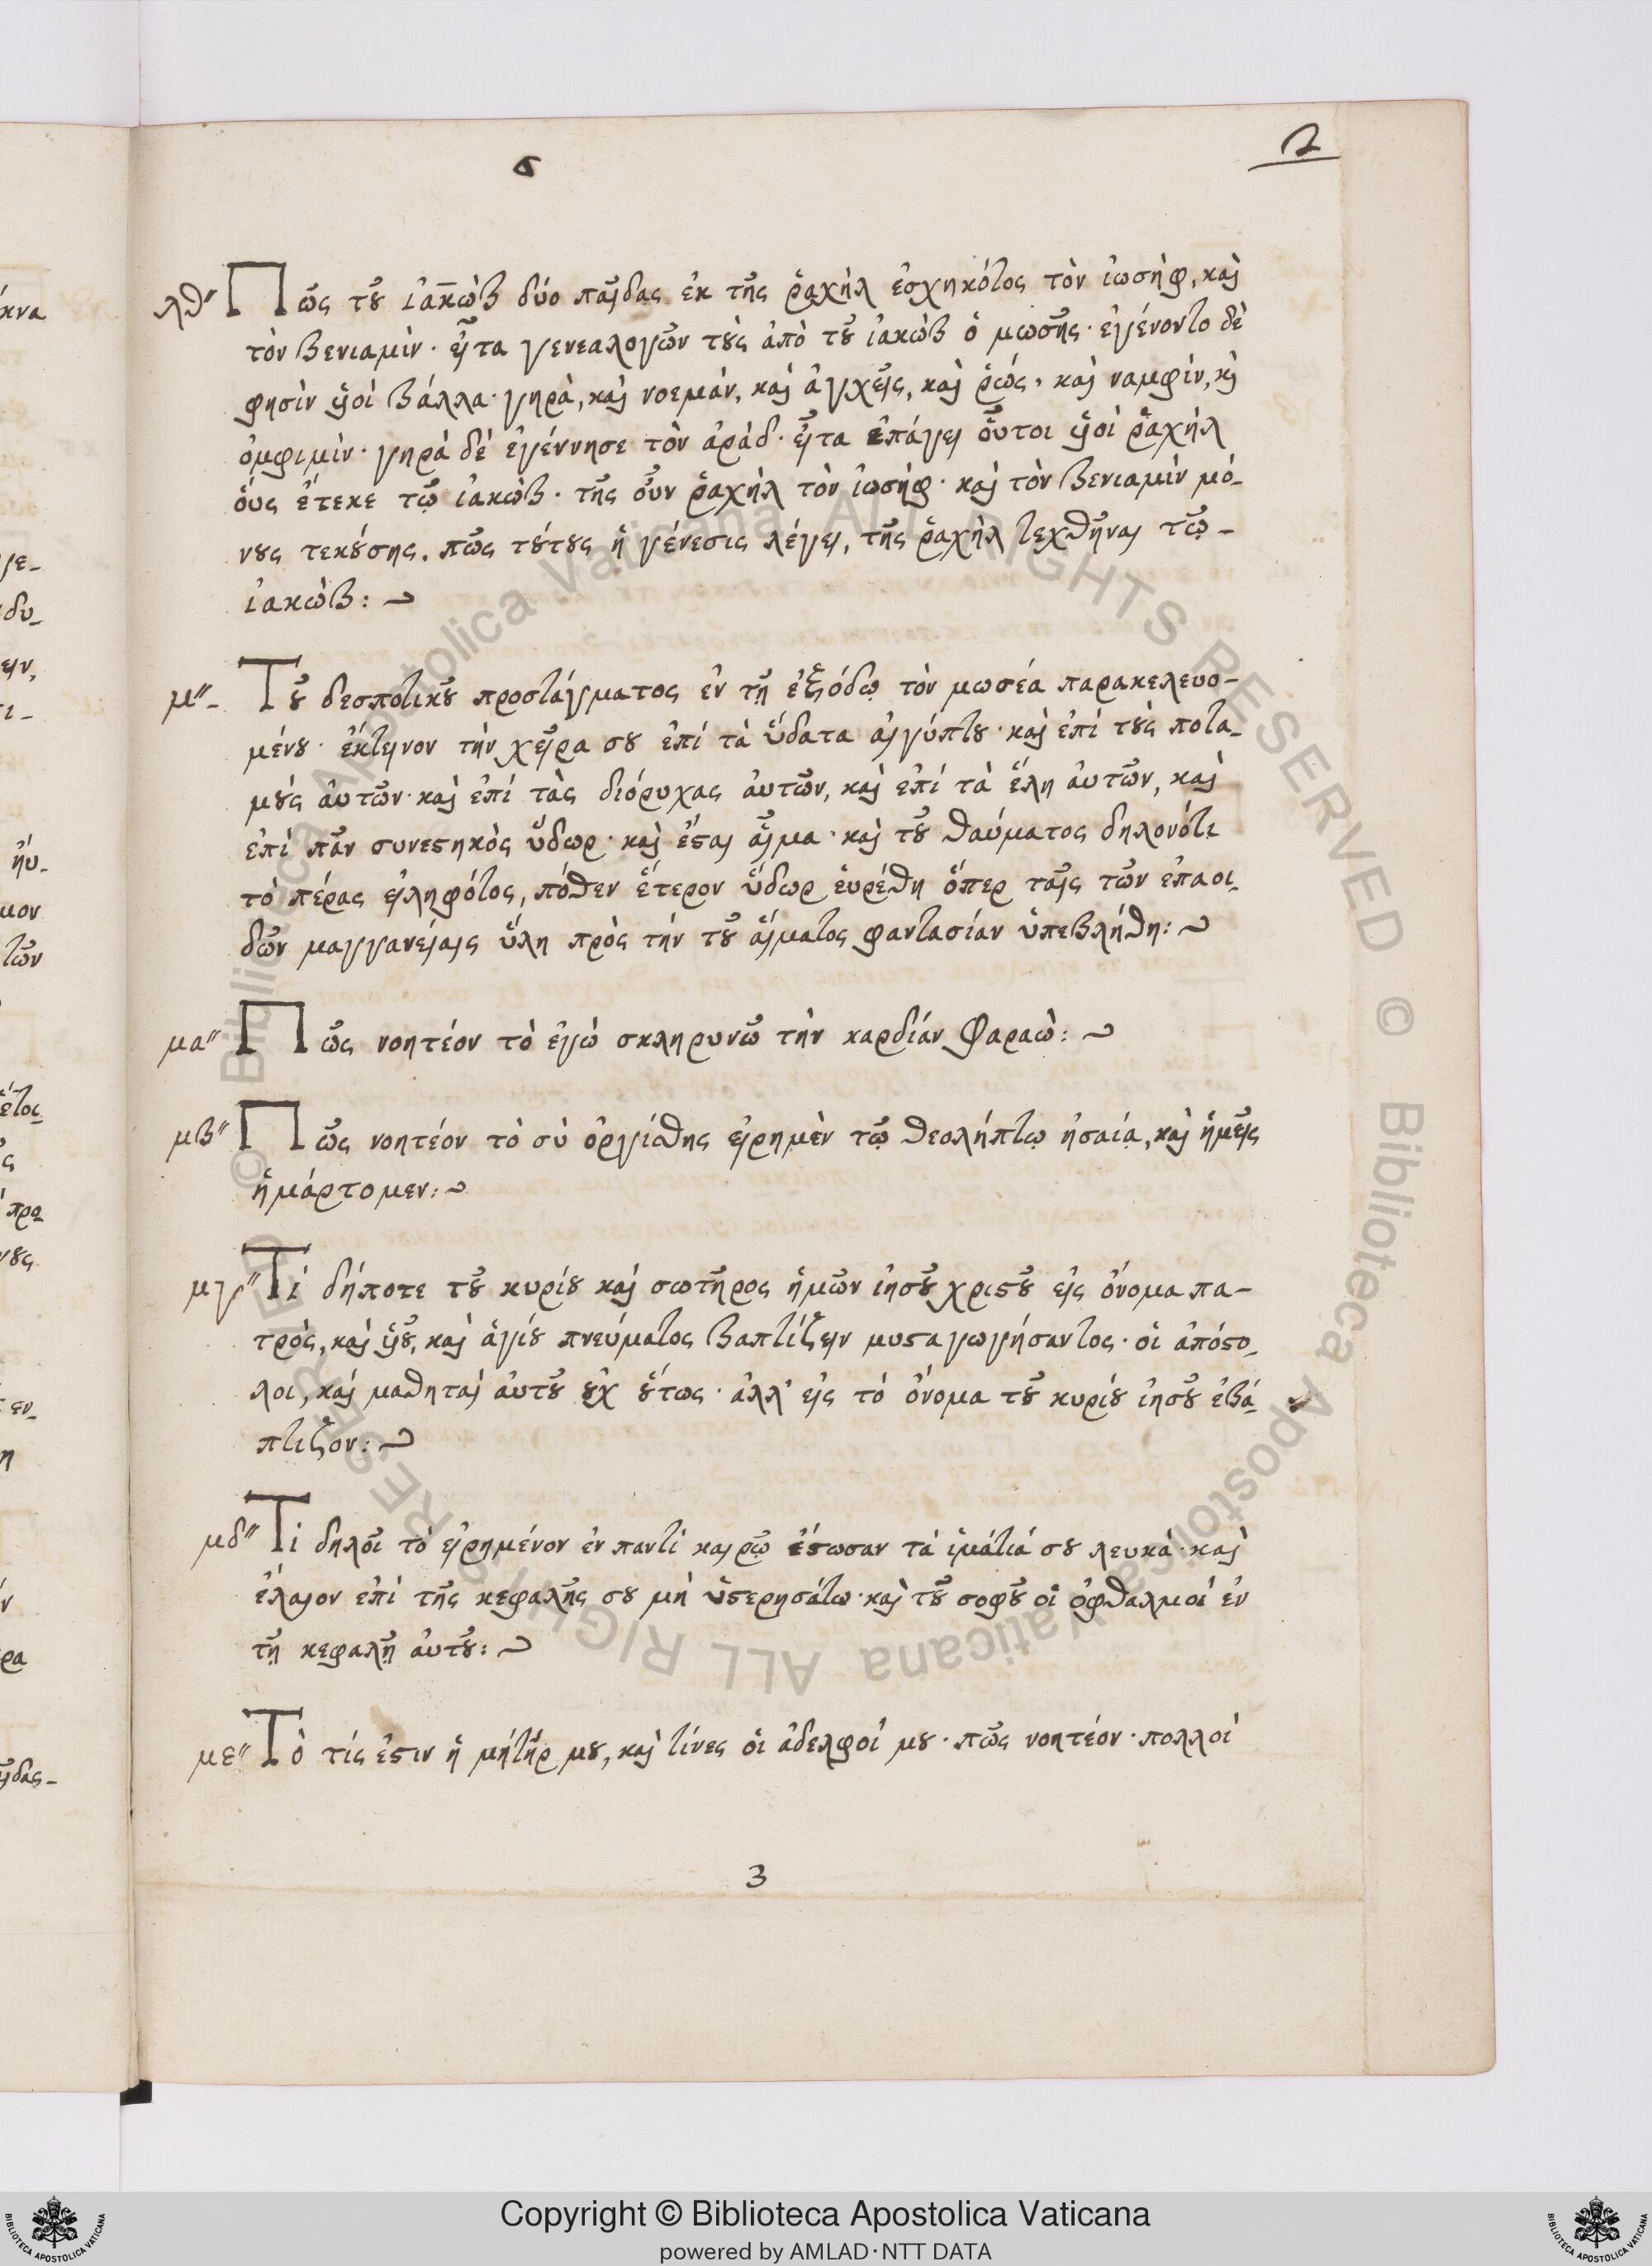 ς
2
λθ´´ Πῶς τοῦ ἰακὼβ δύο παῖδας ἐκ τῆς ῥαχὴλ ἐσχηκότος τὸν ἰωσὴφ, καὶ
τὸν βενιαμὶν· εἶτα γενεαλογῶν τοὺς ἀπὸ τοῦ ἰακὼβ ὁ μωσῆς· ἐγένοντο δὲ
φησὶν υἱοὶ βάλλα· γηρὰ, καὶ νοεμάν, καὶ ἀγχεῖς, καὶ ῥώς, καὶ ναμφίν, κὶ
ὀμφιμίν· γηρὰ δὲ ἐγέννησε τὸν ἀράδ· εἶτα ἐπάγει οὗτοι υἱοὶ ῥαχὴλ
οὓς ἔτεκε τῷ ἰακὼβ· τῆς οὖν ῥαχὴλ τὸν ἰωσήφ· καὶ τὸν βενιαμὶν μό-
νους τεκούσης. πῶς τούτους ἡ γένεσις λέγει, τῆς ῥαχὴλ τεχθῆναι τῷ-
ἰακώβ:
μ´´- Τοῦ δεσποτικοῦ προστάγματος ἐν τῇ ἐξόδῳ τὸν μωσέα παρακελευο-
μένου· ἔκτεινον τὴν χεῖρα σου ἐπὶ τὰ ὕδατα αἰγύπτου· καὶ ἐπὶ τοὺς ποτα-
μοὺς ἀυτῶν· καὶ ἐπὶ τὰς διόρυχας ἀυτῶν, καὶ ἐπὶ τὰ ἕλη ἀυτῶν, καὶ
ἐπὶ πᾶν συνεστηκὸς ὕδωρ· καὶ ἔσται αἷμα· καὶ τοῦ θαύματος δηλονότι
τὸ πέρας εἰληφότος, πόθεν ἕτερον ὕδωρ ἑυρέθη ὅπερ ταῖς τῶν ἐπαοι-
δῶν μαγγανείαις ὕλη πρὸς τὴν τοῦ αἵματος φαντασίαν ὑπεβλήθη:
μα´´ Πῶς νοητέον τὸ ἐγὼ σκληρυνῶ τὴν καρδίαν Φαραώ:
μβ´´ Πῶς νοητέον τὸ σὺ ὀργίσθης εἰρημὲν τῷ θεολήπτῳ ἠσαίᾳ, καὶ ἡμεῖς
ἡμάρτομεν:
μγ´´ Τί δήποτε τοῦ κυρίου καὶ σωτῆρος ἡμῶν ἰησοῦ χριστοῦ εἰς ὄνομα πα-
τρὸς, καὶ υἱοῦ, καὶ ἁγίου πνεύματος βαπτίζειν μυσταγωγήσαντος· οἱ ἀπόστο-
λοι, καὶ μαθηταὶ ἀυτοῦ οὐχ οὕτως· ἀλλ' εἰς τὸ ὄνομα τοῦ κυρίου ἰησοῦ ἐβά-
πτιζον:
μδ´´ Τί δηλοῖ τὸ εἰρημένον ἐν παντὶ καιρῷ ἔστωσαν τὰ ἱμάτιά σου λευκά· καὶ
ἔλαιον ἐπὶ τῆς κεφαλῆς σου μὴ ὑστερησάτω· καὶ τοῦ σοφοῦ οἱ ὀφθαλμοὶ ἐν
τῇ κεφαλῇ ἀυτοῦ:
με´´ Τὸ τίς ἐστιν ἡ μήτηρ μου, καὶ τίνες οἱ ἀδελφοί μου· πῶς νοητέον· πολλοὶ
3
© Biblioteca Apostolica Vaticana ALL RIGHTS RESERVED © Biblioteca Apostolica Vaticana ALL RIGHTS RESERVED
Copyright © Biblioteca Apostolica Vaticana
powered by AMLAD·NTT DATA
BIBLIOTECA APOSTOLICA VATICANA
BIBLIOTECA APOSTOLICA VATICANA